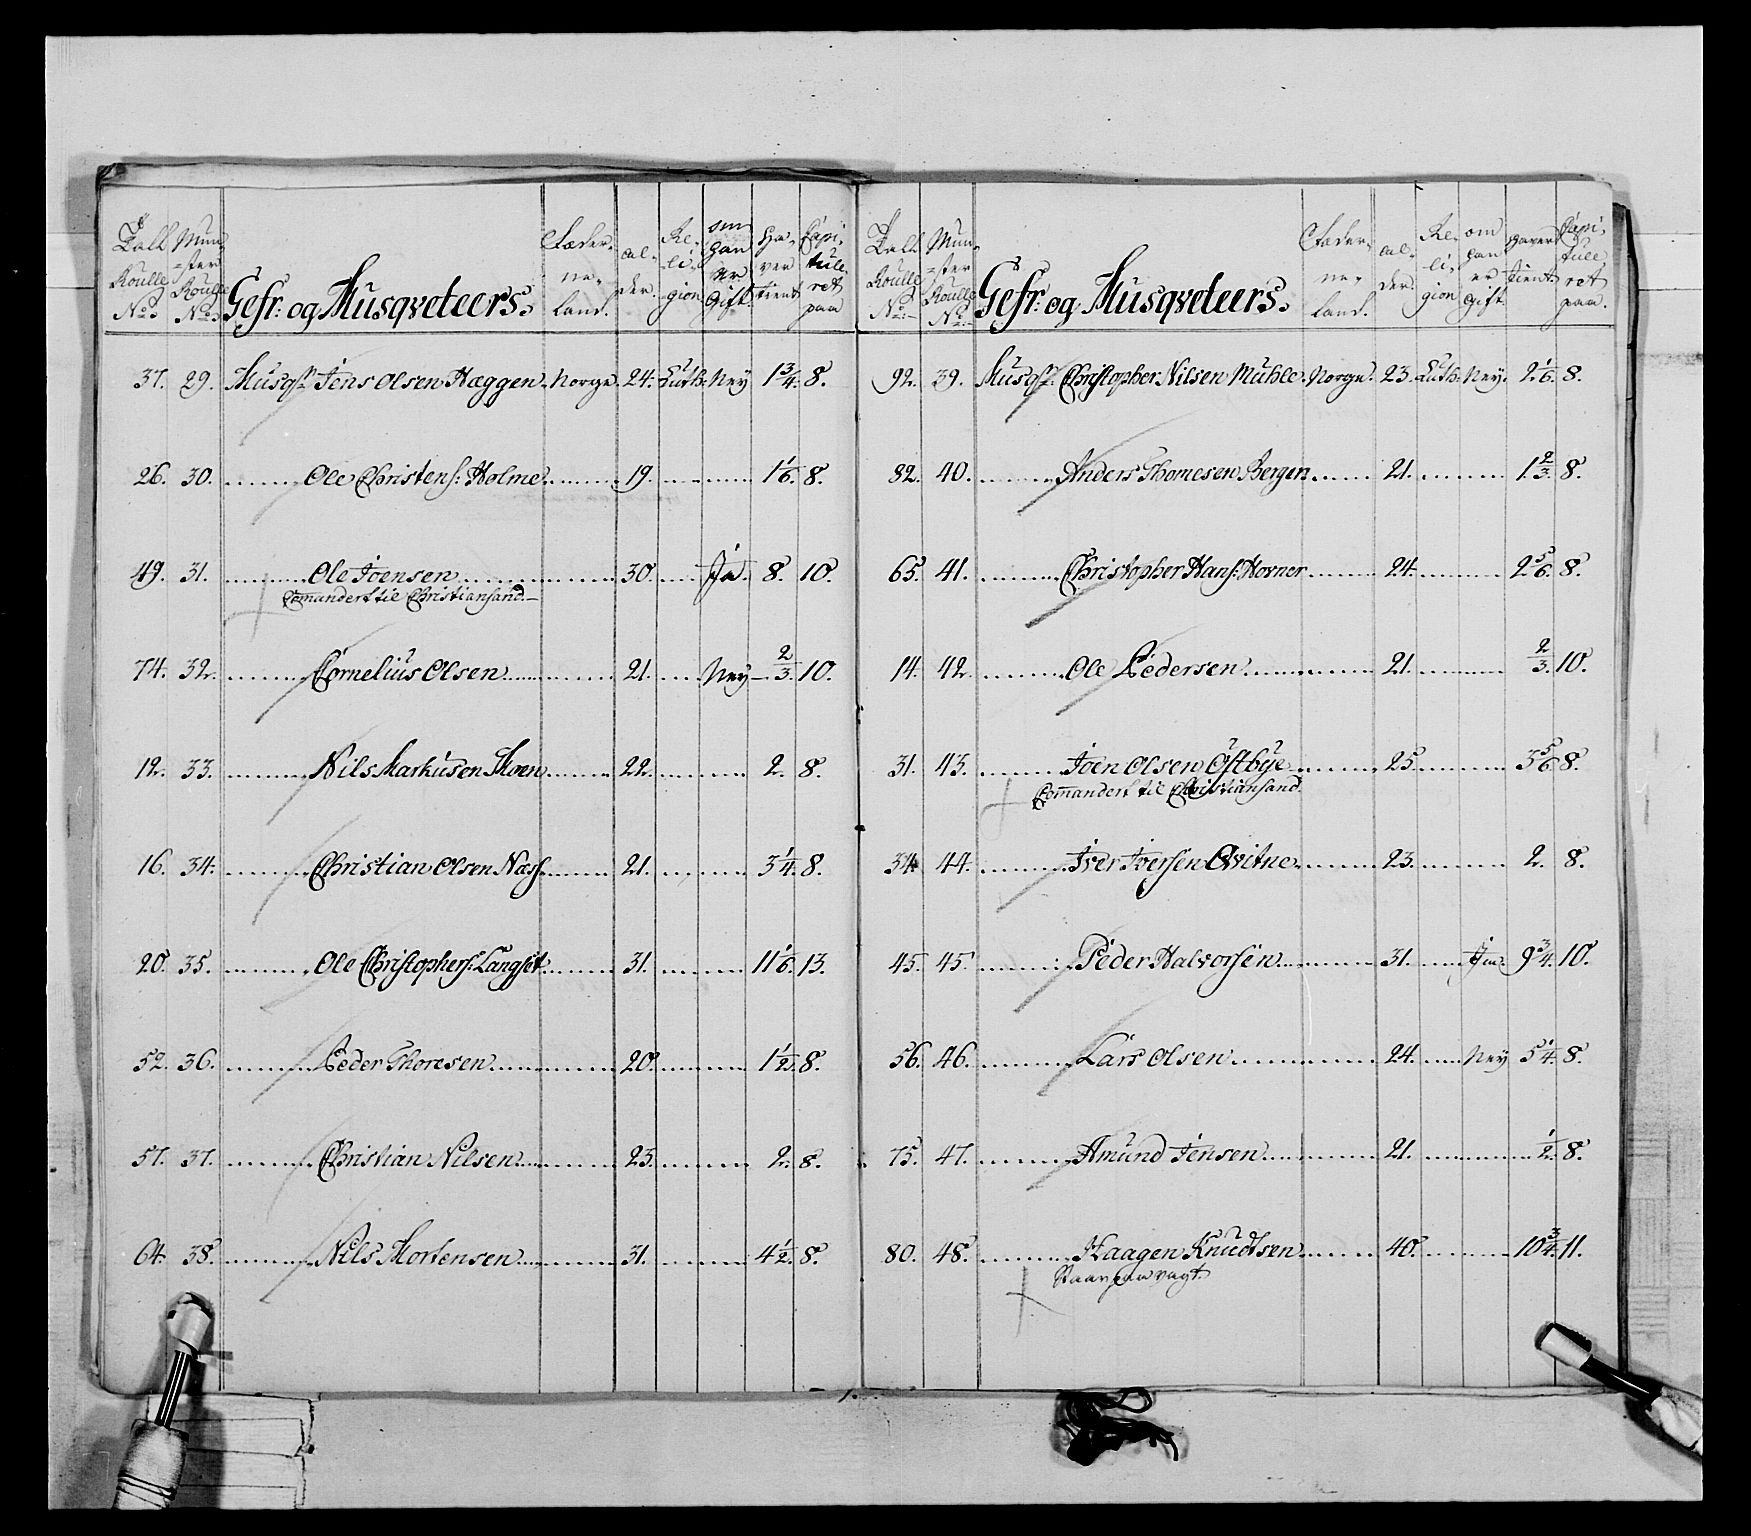 Tall Roulle No:
Mun-ster Roulle No:
Gefr: og Musqveteers.
Fæder-ne-land.
al-der.
Re-li-gion
om han er Gift.
Ha-ver tient
Capi-tule-ret paa
37. 29. Musqt. Jens Olsen Hæggen. Norge. 24. Luth: Ney 1 3/4. 8.
26. 30. Ole Christens: Holme. 19. 1 1/6. 8.
49. 31. Ole Joensen 30. Ja. 8. 10.
Comandert til Christiansand.
74. 32. Cornelius Olsen 21. Ney 2/3. 10.
12. 33. Nils Markusen Moen 22. 2. 8.
16. 34. Christian Olsen Næss 21. 3 1/4. 8.
20. 35. Ole Christophers: Langset 31. 11 1/6. 13.
52. 36. Peder Thoresen 20. 1 1/2. 8.
57. 37. Christian Nilsen 23. 2. 8.
64. 38. Nils Mortensen 31. 4 1/2. 8.
Tall Roulle No:
Mun-ster Roulle No:
Gefr: og Musqveteers.
Fæder-ne-land.
al-der.
Re-li-gion
om han er Gift.
haver tient.
Capi-tule-ret paa.
92. 39. Musqt. Christopher Nilsen Muhle. Norge. 23. Luth: Ney. 2 1/6. 8.
82. 40. Anders Thomesen Bergen 21. 1 2/3. 8.
65. 41. Christopher Hans: Horner 24. 2 5/6. 8.
14. 42. Ole Pedersen 21. 2/3. 10.
31. 43. Joen Olsen Östbye 25. 3 5/6. 8.
Comandert til Christiansand.
34. 44. Iver Iversen Qvitne 23. 2. 8.
45. 45. Peder Halvorsen 31. Ja. 9 3/4. 10.
56. 46. Lars Olsen 24. Ney 5 1/4. 8.
75. 47. Amund Jensen 21. 1/2. 8.
80. 48. Haagen Knudtsen 40. 10 3/4. 11.
Staar paa vagt.